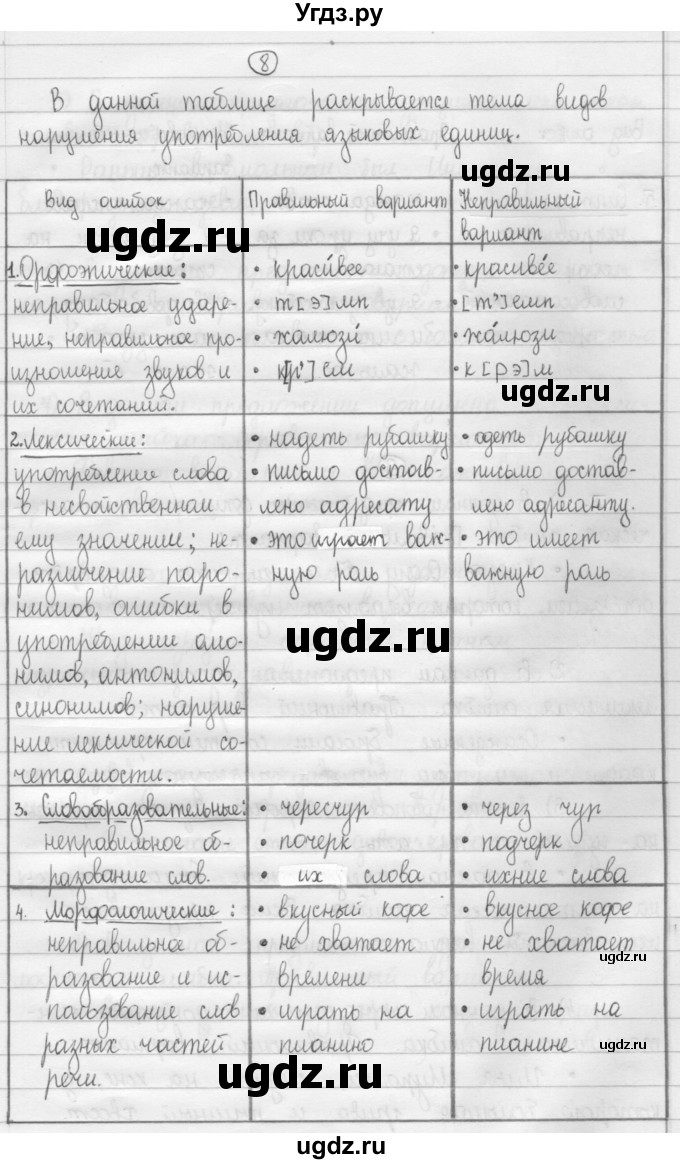 Угдз.ру
8
В данной таблице раскрывается тема видов
нарушения употребления языковых единиц.
Вид ошибок
Правильный вариант
Неправильный
вариант
1. Орфоэпические:
неправильное ударе-
ние, неправильное про-
изношение звуков и
их сочетаний.
• краси́вее
• т[э]мп
• жалюзи́
• к[р']ем
• красиве́е
• [т']емп
• жа́люзи
• к[рэ]м
2. Лексические:
употребление слова
в несвойственном
ему значении; не-
различение паро-
нимов, ошибки в
употреблении омо-
нимов, антонимов,
синонимов; наруше-
ние лексической со-
четаемости.
• надеть рубашку
• письмо достав-
лено адресату
• это играет важ-
ную роль
• одеть рубашку
• письмо достав-
лено адресанту.
• это имеет
важную роль
3. Словообразовательные:
неправильное об-
разование слов.
• чересчур
• почерк
• их слова
• через чур
• подчерк
• ихние слова
4. Морфологические:
неправильное об-
разование и ис-
пользование слов
разных частей
речи.
• вкусный кофе
• не хватает
времени
• играть на
пианино
• вкусное кофе
• не хватает
время
• играть на
пианине
ugdz.ru
ugdz.ru
ugdz.ru
ugdz.ru
ugdz.ru
ugdz.ru
ugdz.ru
ugdz.ru